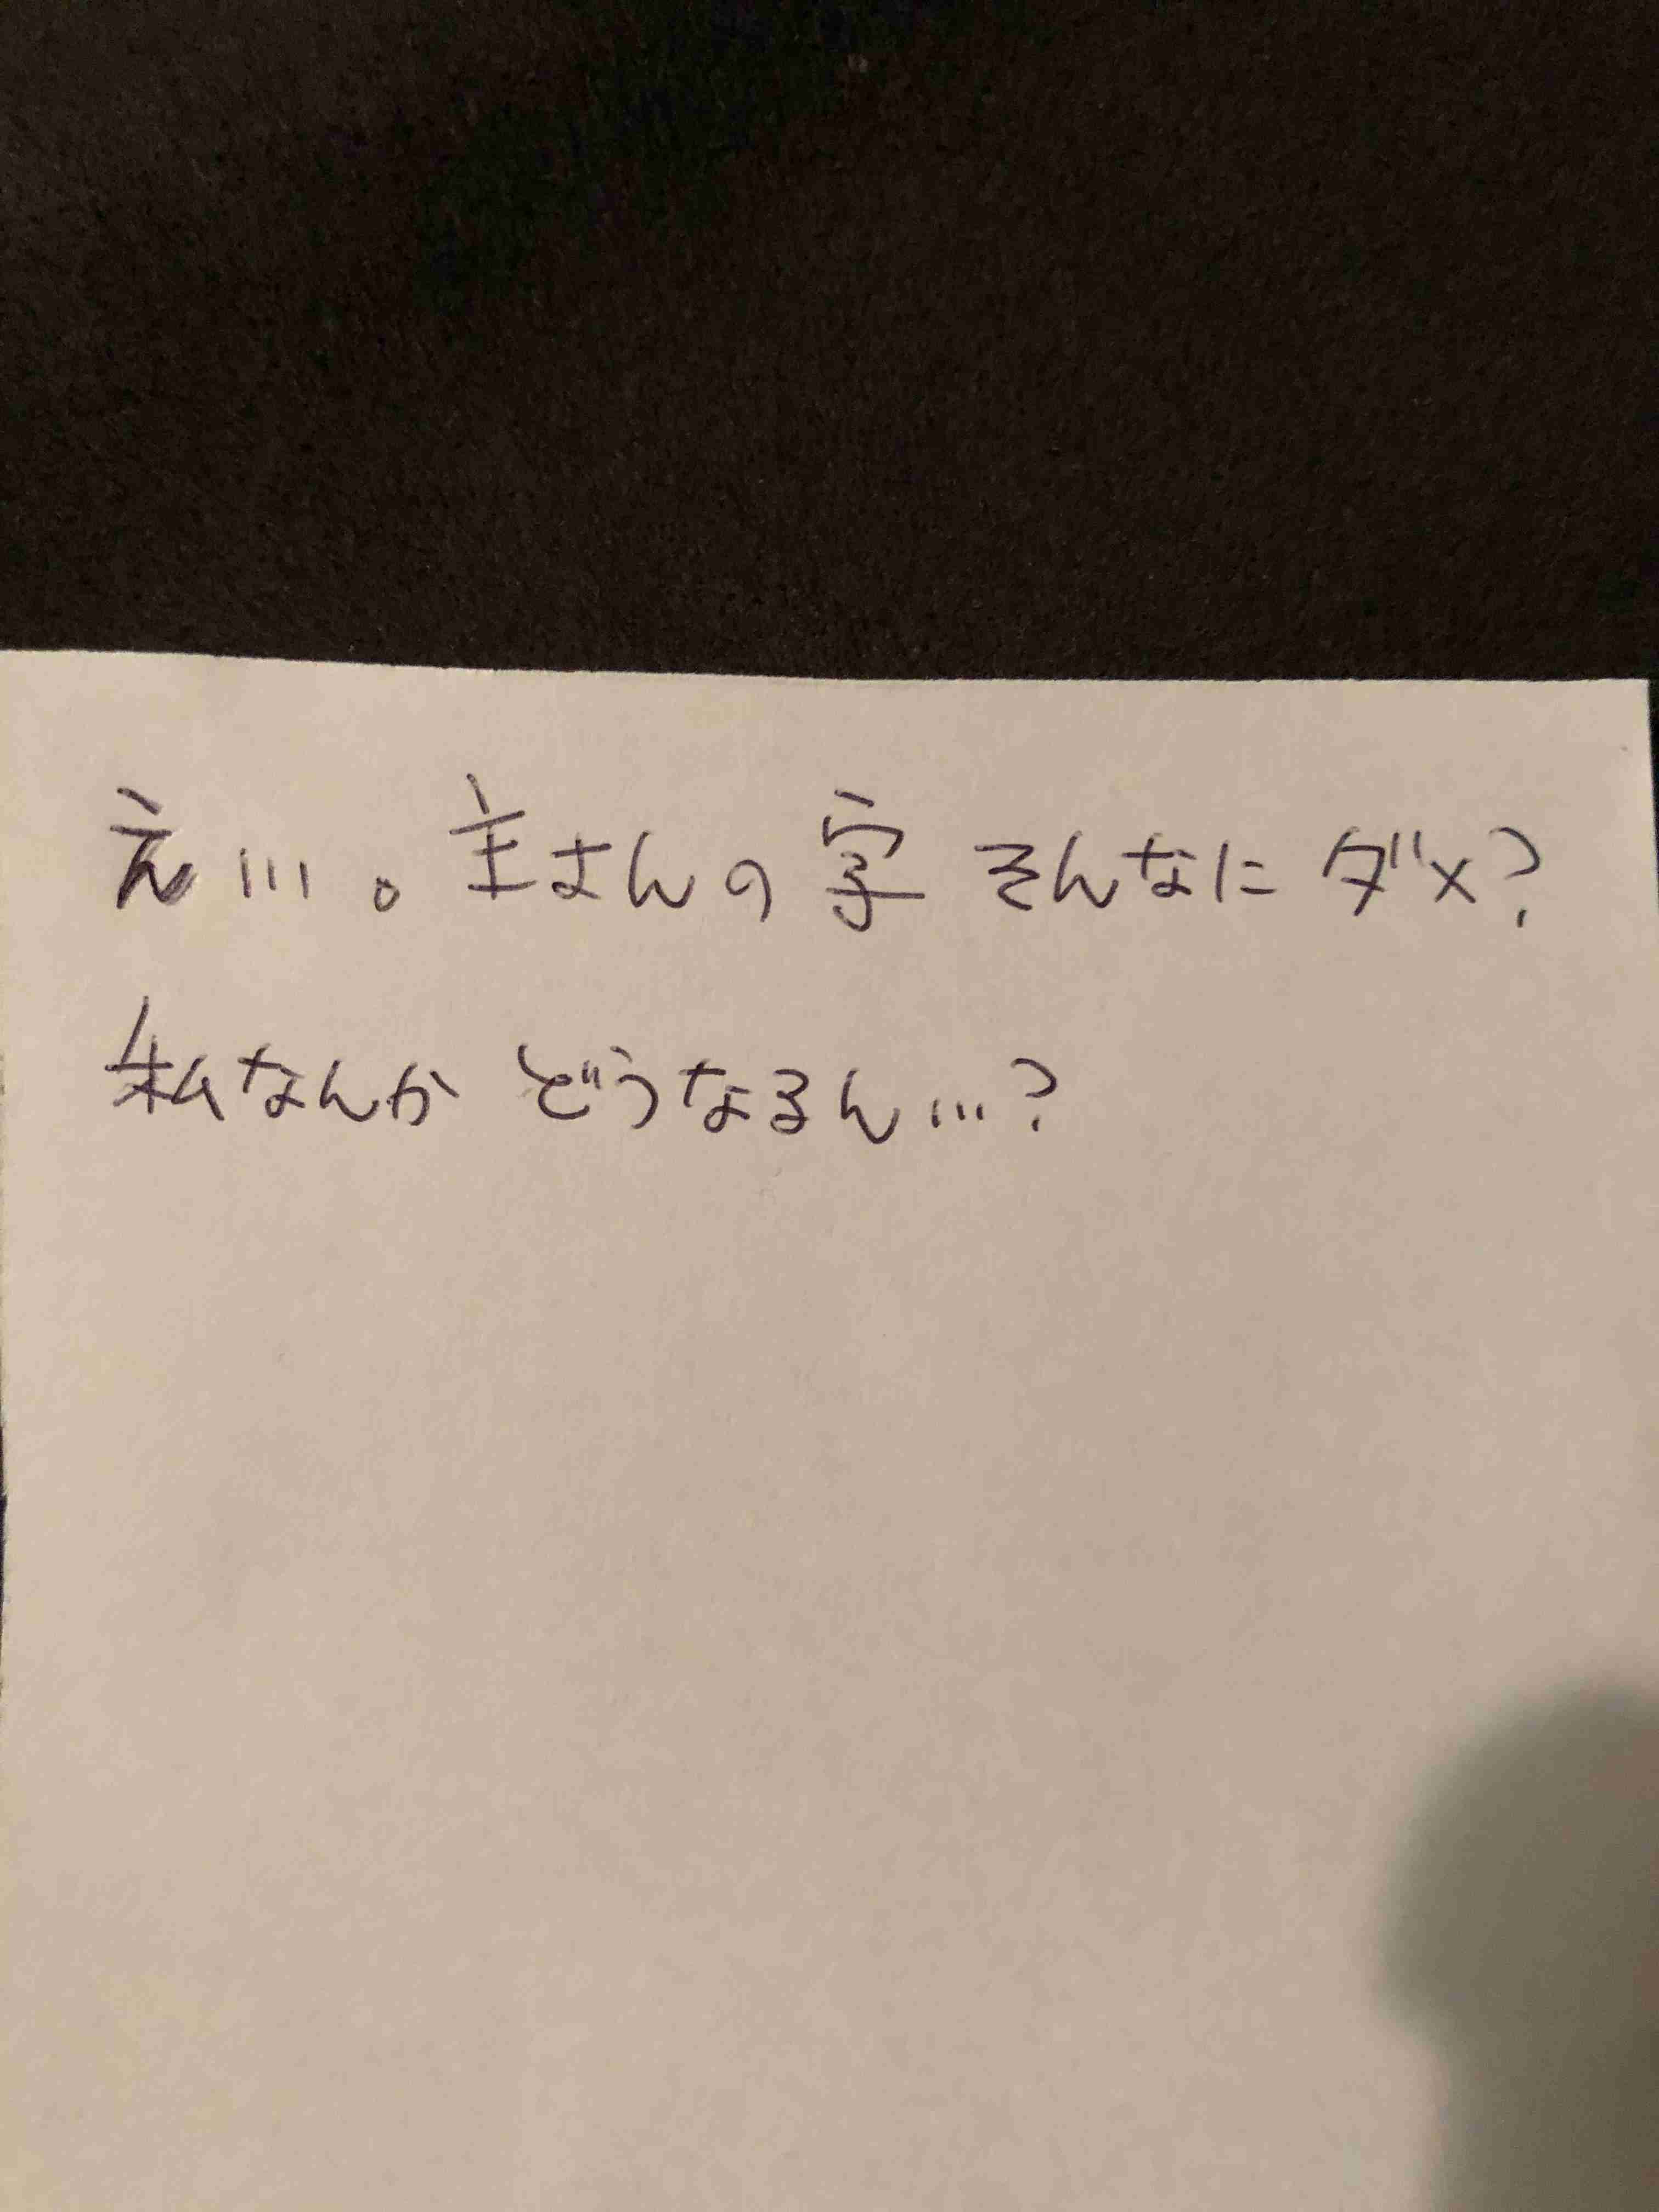 え…。主さんの字 そんなに ダメ?
私なんか どうなるん…?